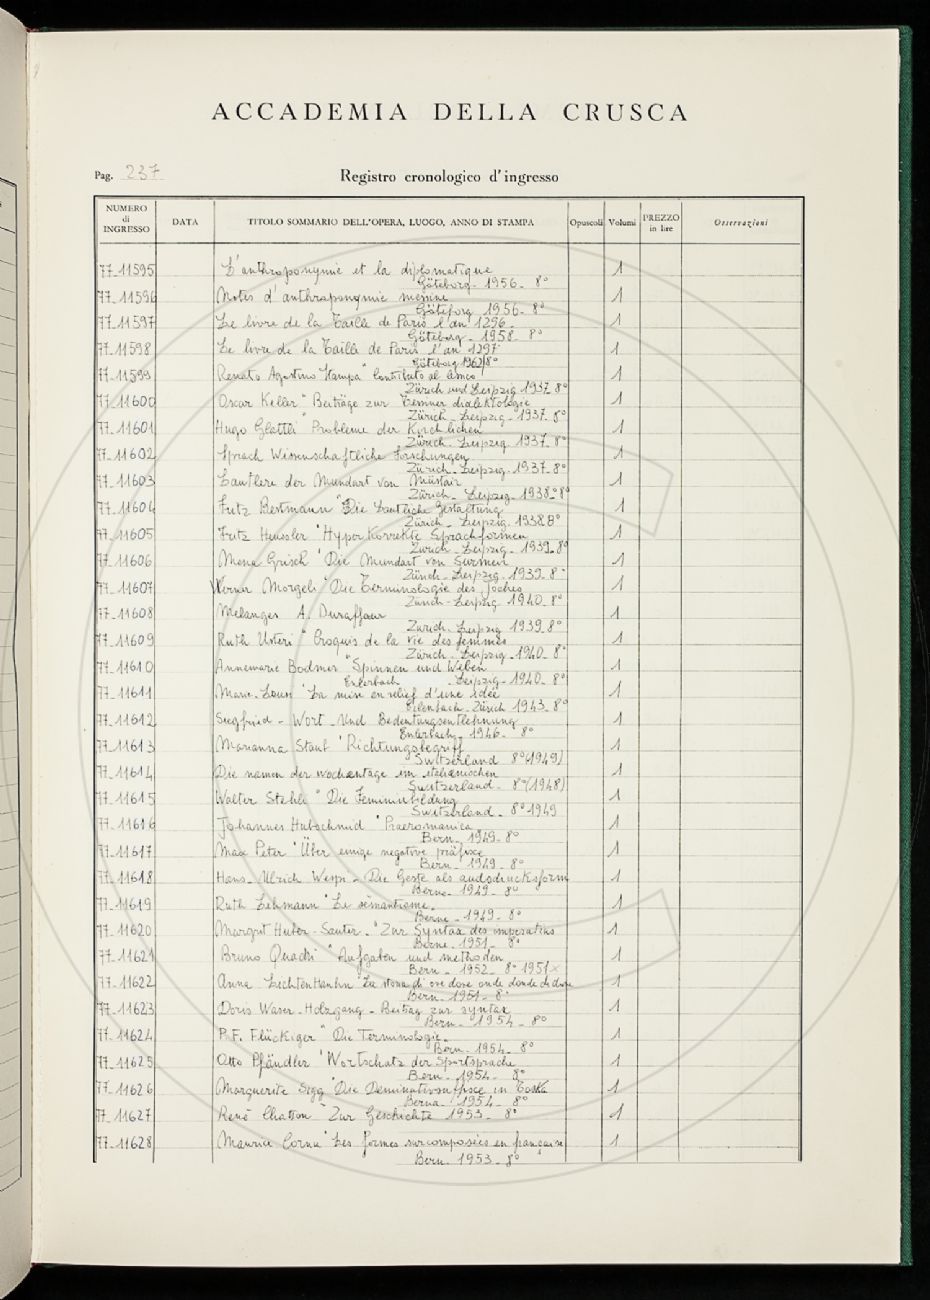 ACCADEMIA DELLA CRUSCA
Pag. 237
Registro cronologico d'ingresso
NUMERO di INGRESSO DATA TITOLO SOMMARIO DELL'OPERA, LUOGO, ANNO DI STAMPA Opuscoli Volumi PREZZO in lire Osservazioni
77-11595 L'anthroponymie et la diplomatique 1
Göteborg - 1956 - 8°
77-11596 Notes d'anthroponymie messine 1
Göteborg 1956 - 8°
77-11597 Le livre de la Taille de Paris l'an 1296 - 1
Göteborg - 1958 - 8°
77-11598 Le livre de la Taille de Paris l'an 1297 1
Göteborg 1962/8°
77-11599 Renato Agostino Stampa "Contributo al 1
Zürich und Leipzig 1937 8°
77-11600 Oscar Keller "Beiträge zur Tessiner dialektologie 1
Zürich - Leipzig - 1937 - 8°
77-11601 Hugo Glättli "Probleme der Kirchlichen 1
Zürich - Leipzig - 1937 - 8°
77-11602 Sprach Wissenschaftliche Forschungen 1
Zürich - Leipzig - 1937 - 8°
77-11603 Lautlere der Mundart von Müstair 1
Zürich - Leipzig - 1938 - 8°
77-11604 Fritz Bestmann "Die Lautliche Gestaltung 1
Zürich - Leipzig - 1938 8°
77-11605 Fritz Heussler "Hyper Korrekte Sprachformen 1
Zürich - Leipzig - 1939 - 8°
77-11606 Mena Grisch "Die Mundart von Surmeir 1
Zürich - Leipzig - 1939 - 8°
77-11607 Werner Morgeli "Die Terminologie des Joches 1
Zürich - Leipzig 1940 - 8°
77-11608 Melanges A. Duraffour 1
Zürich - Leipzig 1939 - 8°
77-11609 Ruth Usteri "Croquis de la vie des femmes 1
Zürich - Leipzig - 1940 - 8°
77-11610 Annemarie Bodmer "Spinnen und Weben 1
Erlenbach - Leipzig - 1940 - 8°
77-11611 Marie-Loun "La mise en relief d'une idée 1
Erlenbach - Zürich 1943 - 8°
77-11612 Siegfried - Wort - Und Bedeutungsentlehnung 1
Erlenbach - 1946 - 8°
77-11613 Marianna Staub "Richtungsbegriff 1
Switzerland 8°(1949)
77-11614 Die namen der wochentage im italienischen 1
Switzerland - 8°(1948)
77-11615 Walter Stehli "Die Femininbildung 1
Switzerland - 8° 1949
77-11616 Johannes Hubschmid "Praeromanica 1
Bern - 1949 - 8°
77-11617 Max Peter "Über einige negative präfixe 1
Bern - 1949 - 8°
77-11618 Hans - Ulrich Wespi - Die Geste als audsdrucksform 1
Berne - 1949 - 8°
77-11619 Ruth Lehmann "Le sémantisme - 1
Berne - 1949 - 8°
77-11620 Margrit Huber - Sauter - "Zur Syntax des imperativs 1
Berne - 1951 - 8°
77-11621 Bruno Quadri "Aufgaben und methoden 1
Bern - 1952 - 8° 1951
77-11622 Anna LichtenHanhn "La storia di ove dove onde donde di dove 1
Bern - 1951 - 8°
77-11623 Doris Waser-Holzgang - Beitrag zur syntax 1
Bern - 1954 - 8°
77-11624 P.F. Flückiger "Die Terminologie - 1
Bern - 1954 - 8°
77-11625 Otto Pfändler "Wortschatz der Sportsprache 1
Bern - 1954 - 8°
77-11626 Marguerite Sigg "Die Deminutivsuffixe in Toska 1
Berna - 1954 - 8°
77-11627 René Chatton "Zur Geschichte 1953 - 8° 1
77-11628 Maurice Cornu "Les formes surcomposées en français 1
Bern - 1953 - 8°